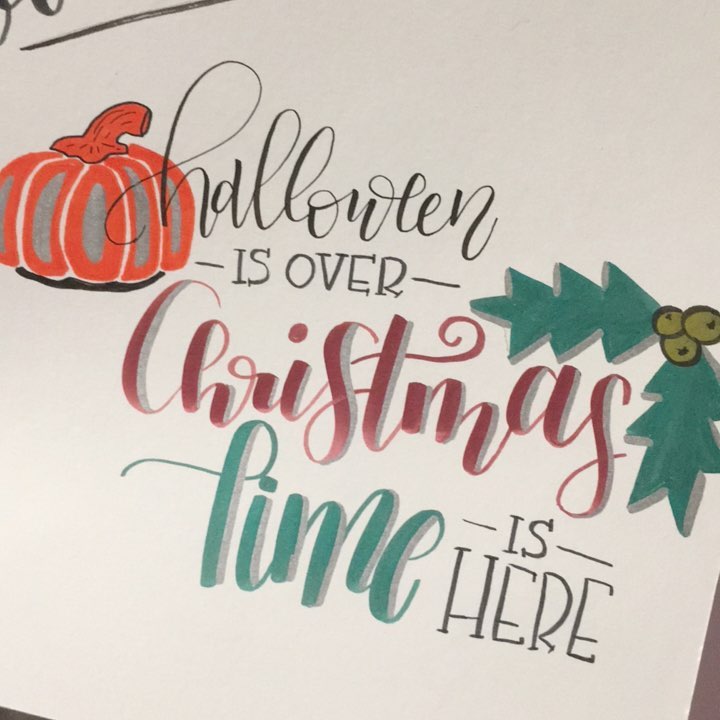 halloween
— IS OVER —
Christmas
time
— IS —
HERE